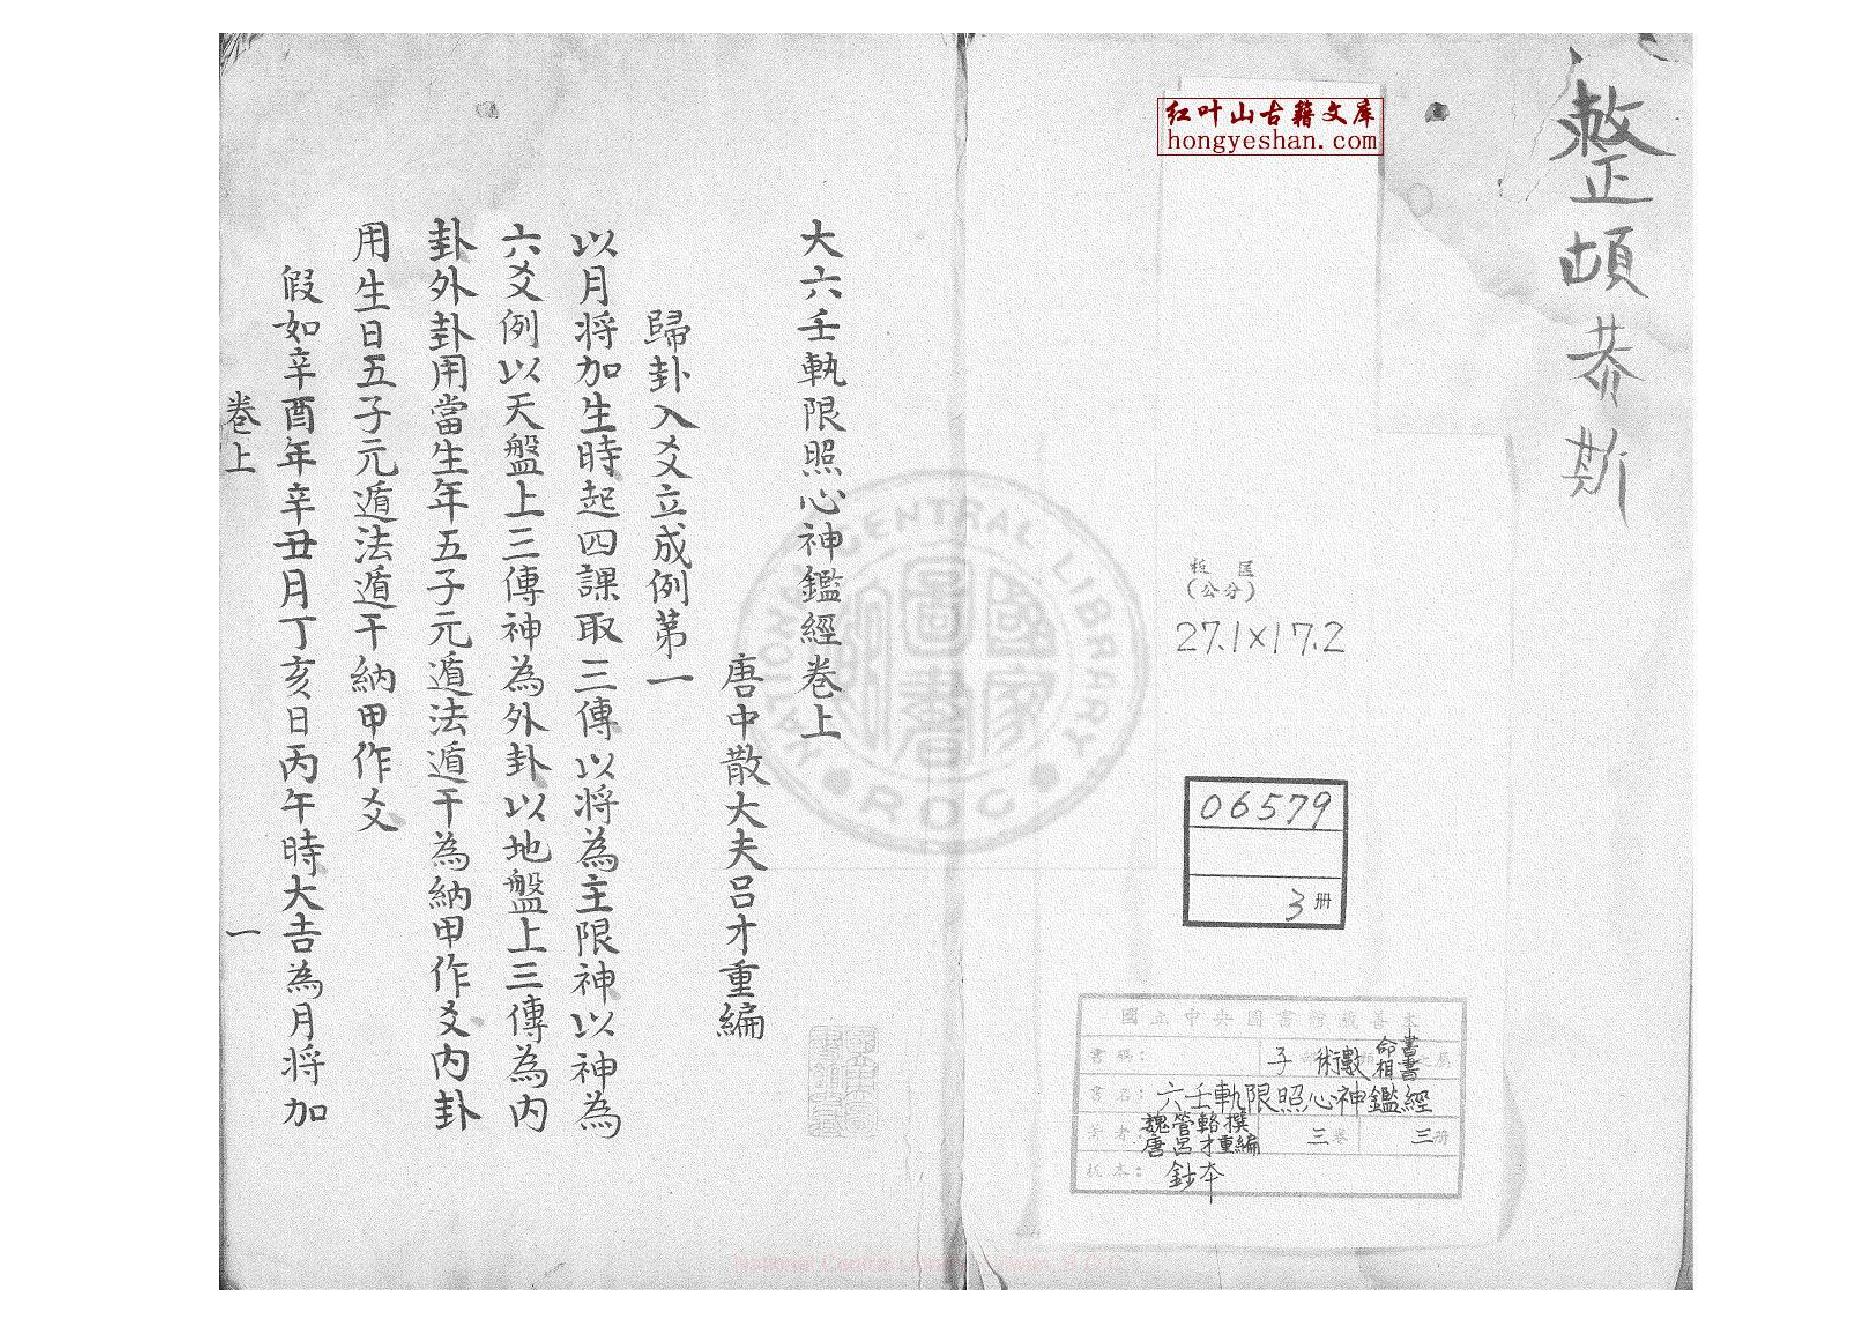 整頓恭斯
红叶山古籍文库
hongyeshan.com
板匡
(公分)
27.1×17.2
06579
3册
國立中央圖書館藏善本
子 術數 命書相書
書名：六壬軌限照心神鑑經
著者：魏管輅撰
唐呂才重編
三卷
三册
版本：鈔本
NATIONAL CENTRAL LIBRARY
國家圖書
ROC
大六壬軌限照心神鑑經卷上
唐中散大夫呂才重編
歸卦入爻立成例第一
以月将加生時起四課取三傳以将為主限神以神為
六爻例以天盤上三傳神為外卦以地盤上三傳為内
卦外卦用當生年五子元遁法遁干為納甲作爻内卦
用生日五子元遁法遁干納甲作爻
假如辛酉年辛丑月丁亥日丙午時大吉為月将加
卷上
一